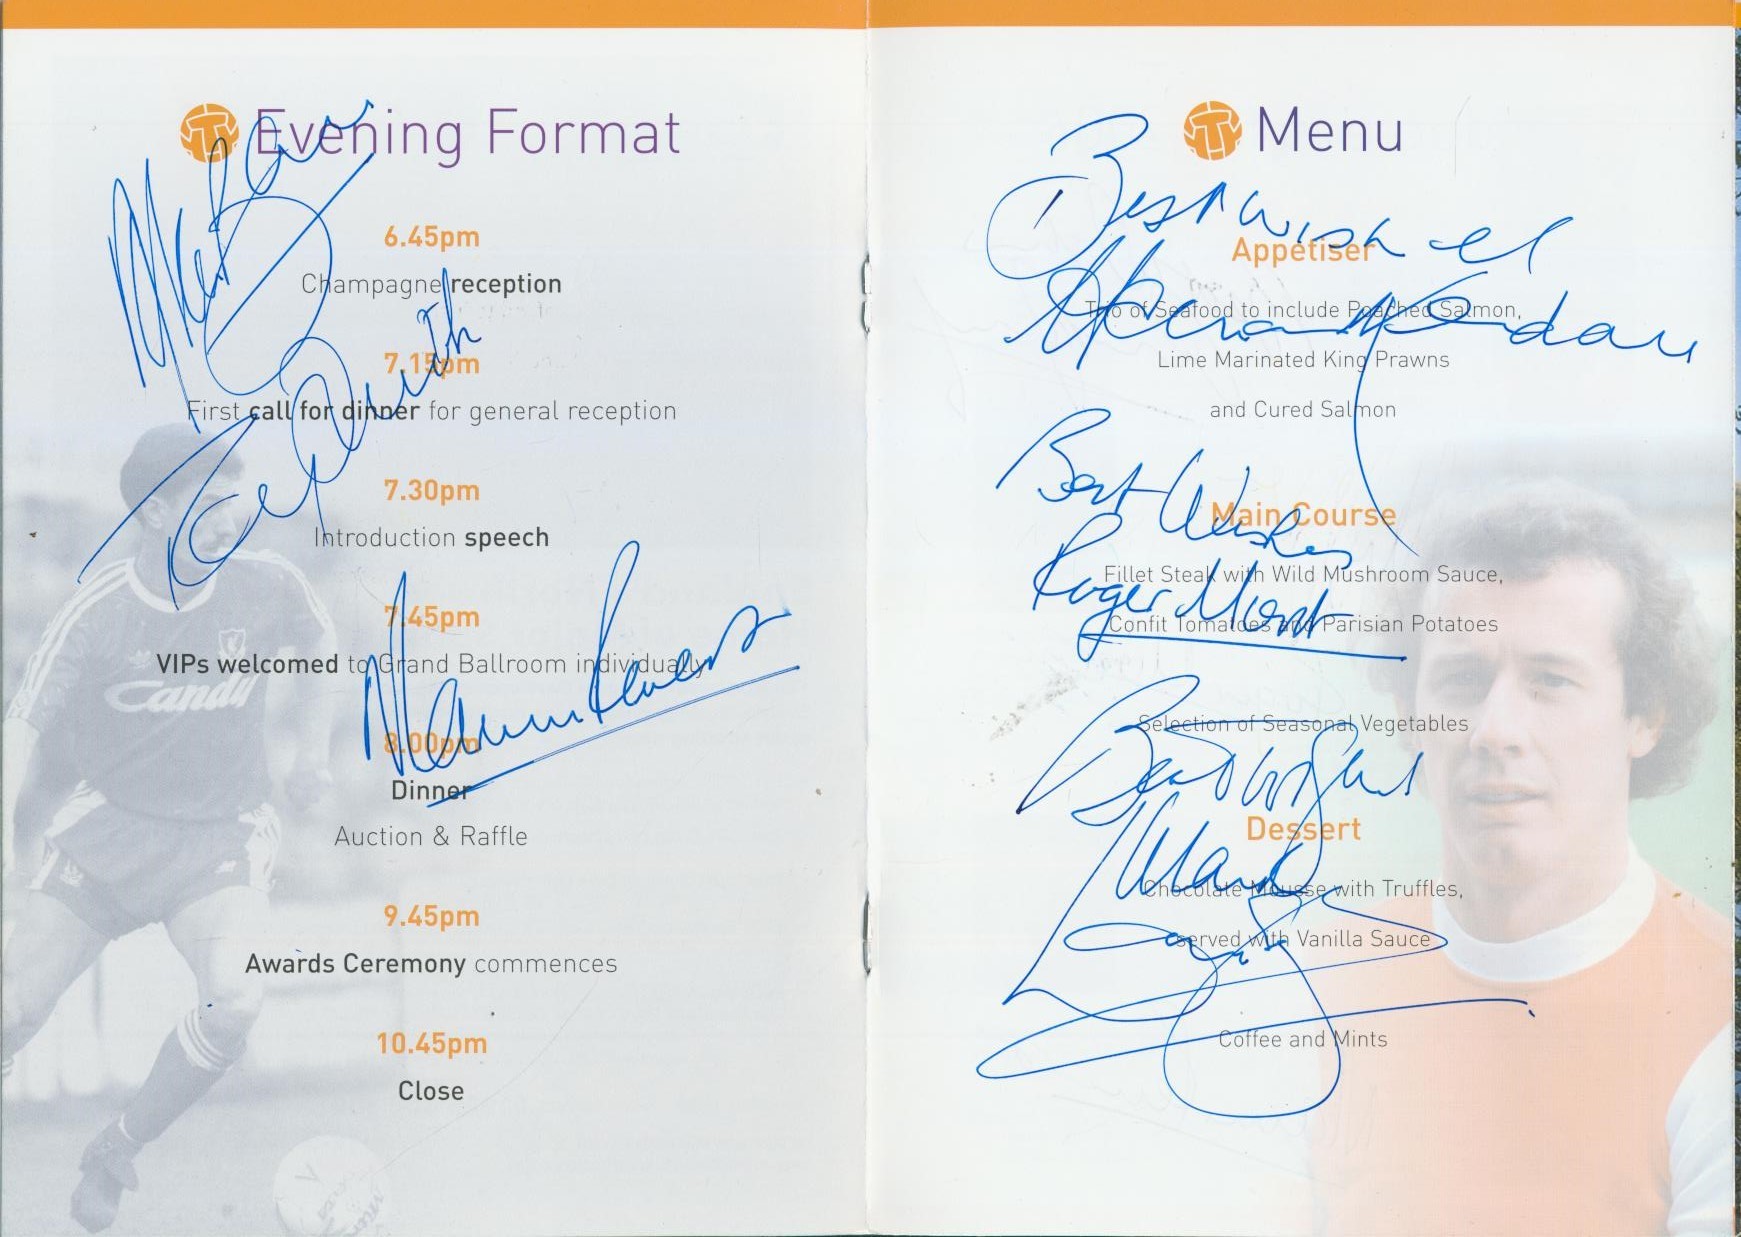 Evening Format
6.45pm
Champagne reception
7.15pm
First call for dinner for general reception
7.30pm
Introduction speech
7.45pm
VIPs welcomed to Grand Ballroom individually
8.00pm
Dinner
Auction & Raffle
9.45pm
Awards Ceremony commences
10.45pm
Close
Candy
Menu
Best wishes
Appetiser
Trio of Seafood to include Poached Salmon,
Lime Marinated King Prawns
and Cured Salmon
Best Wishes
Roger Hunt
Main Course
Fillet Steak with Wild Mushroom Sauce,
Confit Tomatoes and Parisian Potatoes
Selection of Seasonal Vegetables
Best wishes
Dessert
Chocolate Mousse with Truffles,
served with Vanilla Sauce
Coffee and Mints